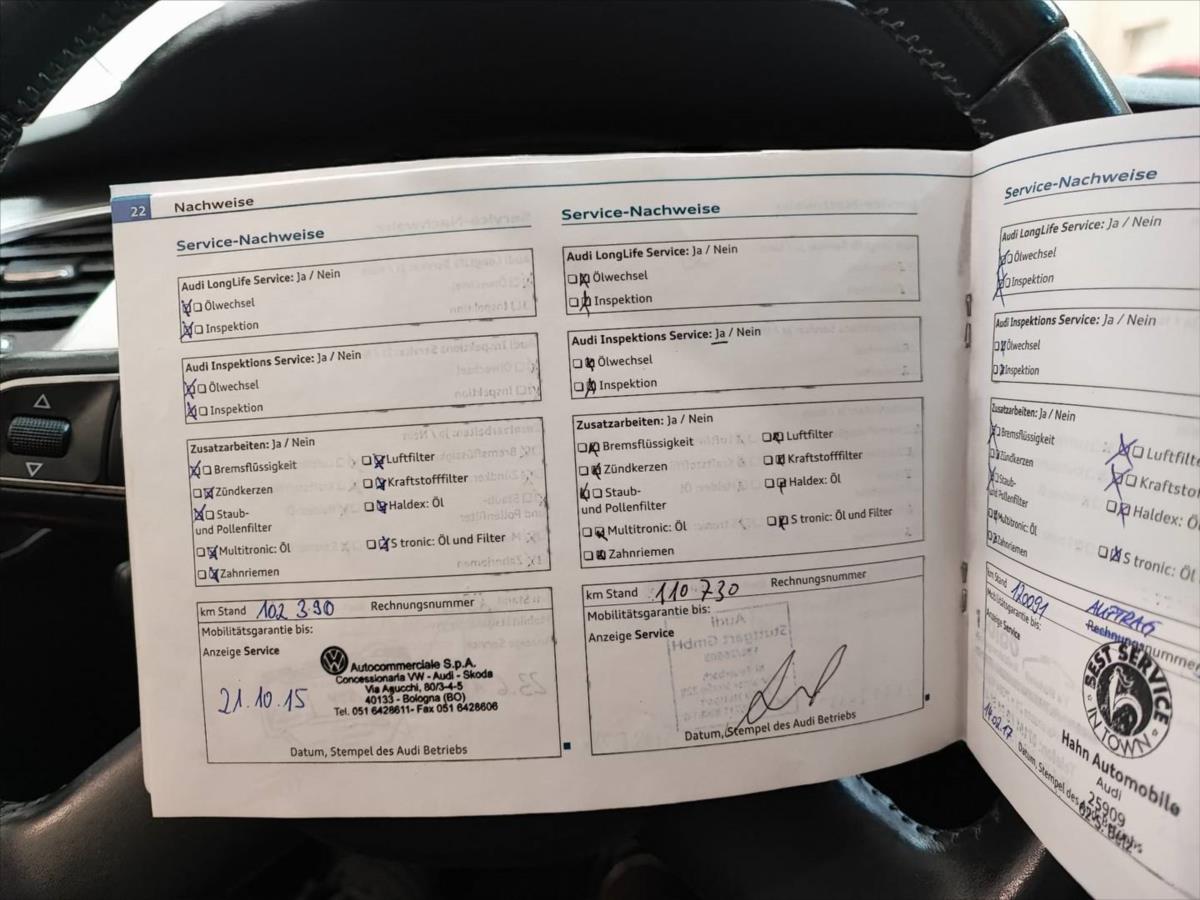 22 Nachweise
Service-Nachweise
Audi LongLife Service: Ja / Nein
Ölwechsel
Inspektion
Audi Inspektions Service: Ja / Nein
Ölwechsel
Inspektion
Zusatzarbeiten: Ja / Nein
Bremsflüssigkeit
Luftfilter
Zündkerzen
Kraftstofffilter
Staub-
und Pollenfilter
Haldex: Öl
Multitronic: Öl
S tronic: Öl und Filter
Zahnriemen
km Stand 102 390 Rechnungsnummer
Mobilitätsgarantie bis:
Anzeige Service
21.10.15
Autocommerciale S.p.A.
Concessionaria VW - Audi - Skoda
Via Agucchi, 80/3-4-5
40133 - Bologna (BO)
Tel. 051 6428611- Fax 051 6428606
Datum, Stempel des Audi Betriebs
Service-Nachweise
Audi LongLife Service: Ja / Nein
Ölwechsel
Inspektion
Audi Inspektions Service: Ja / Nein
Ölwechsel
Inspektion
Zusatzarbeiten: Ja / Nein
Bremsflüssigkeit
Luftfilter
Zündkerzen
Kraftstofffilter
Staub-
und Pollenfilter
Haldex: Öl
Multitronic: Öl
S tronic: Öl und Filter
Zahnriemen
km Stand 110 730 Rechnungsnummer
Mobilitätsgarantie bis:
Anzeige Service
Audi
Stuttgart GmbH
Datum, Stempel des Audi Betriebs
Service-Nachweise
Audi LongLife Service: Ja / Nein
Ölwechsel
Inspektion
Audi Inspektions Service: Ja / Nein
Ölwechsel
Inspektion
Zusatzarbeiten: Ja / Nein
Bremsflüssigkeit
Luftfilte
Zündkerzen
Kraftsto
Staub-
und Pollenfilter
Haldex: Öl
Multitronic: Öl
S tronic: Öl
Zahnriemen
km Stand 120091 AUFTRAG
Rechnungsnummer
Mobilitätsgarantie bis:
Anzeige Service
BEST SERVICE
IN TOWN
14.02.17
Hahn Automobile
Audi
25909
Datum, Stempel des